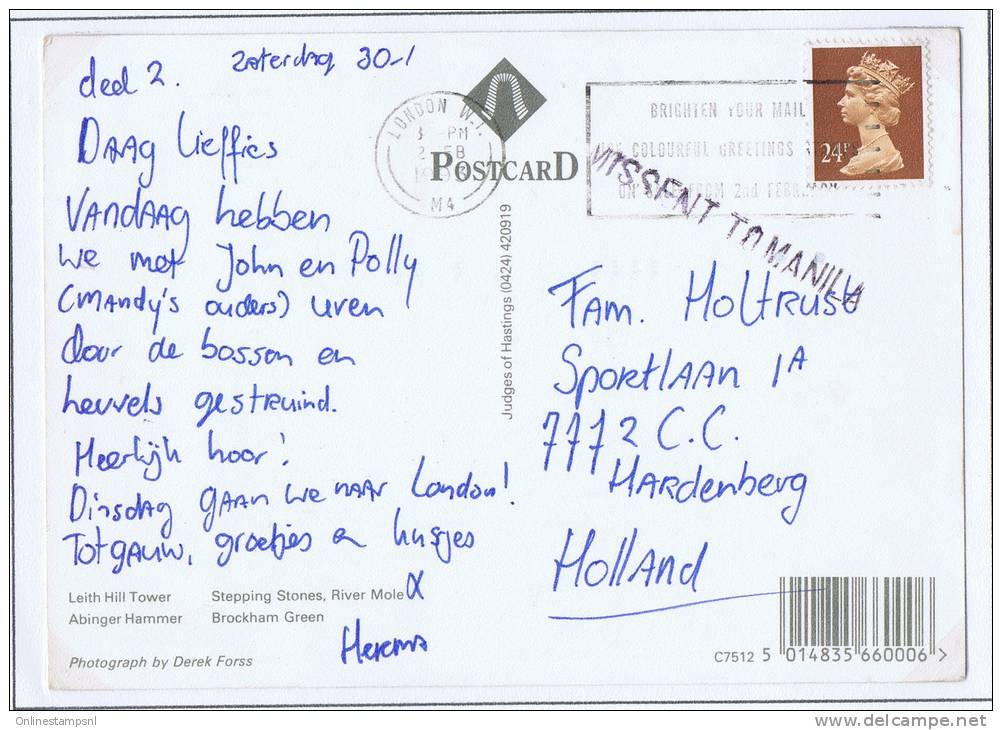 deel 2. zaterdag 30-1
DAAG lieffies
VANDAAG hebben
we met John en Polly
(MANDY's ouders) uren
door de bossen en
heuvels gestruind.
Heerlijk hoor!
Dinsdag GAAN we NAAR London!
Tot GAUW, groetjes en kusjes
Leith Hill Tower Stepping Stones, River Mole
Abinger Hammer Brockham Green
Photograph by Derek Forss
POSTCARD
LONDON W.1.
PM
M4
BRIGHTEN YOUR MAIL
COLOURFUL GREETINGS
24P
MISSENT TO MANILA
Judges of Hastings (0424) 420919
FAM. HOLTRUST
SPORTLAAN 1A
7772 C.C.
HARDENBERG
HOLLAND
C7512 5 014835 660006 >
Onlinestampsnl
delcampe.net